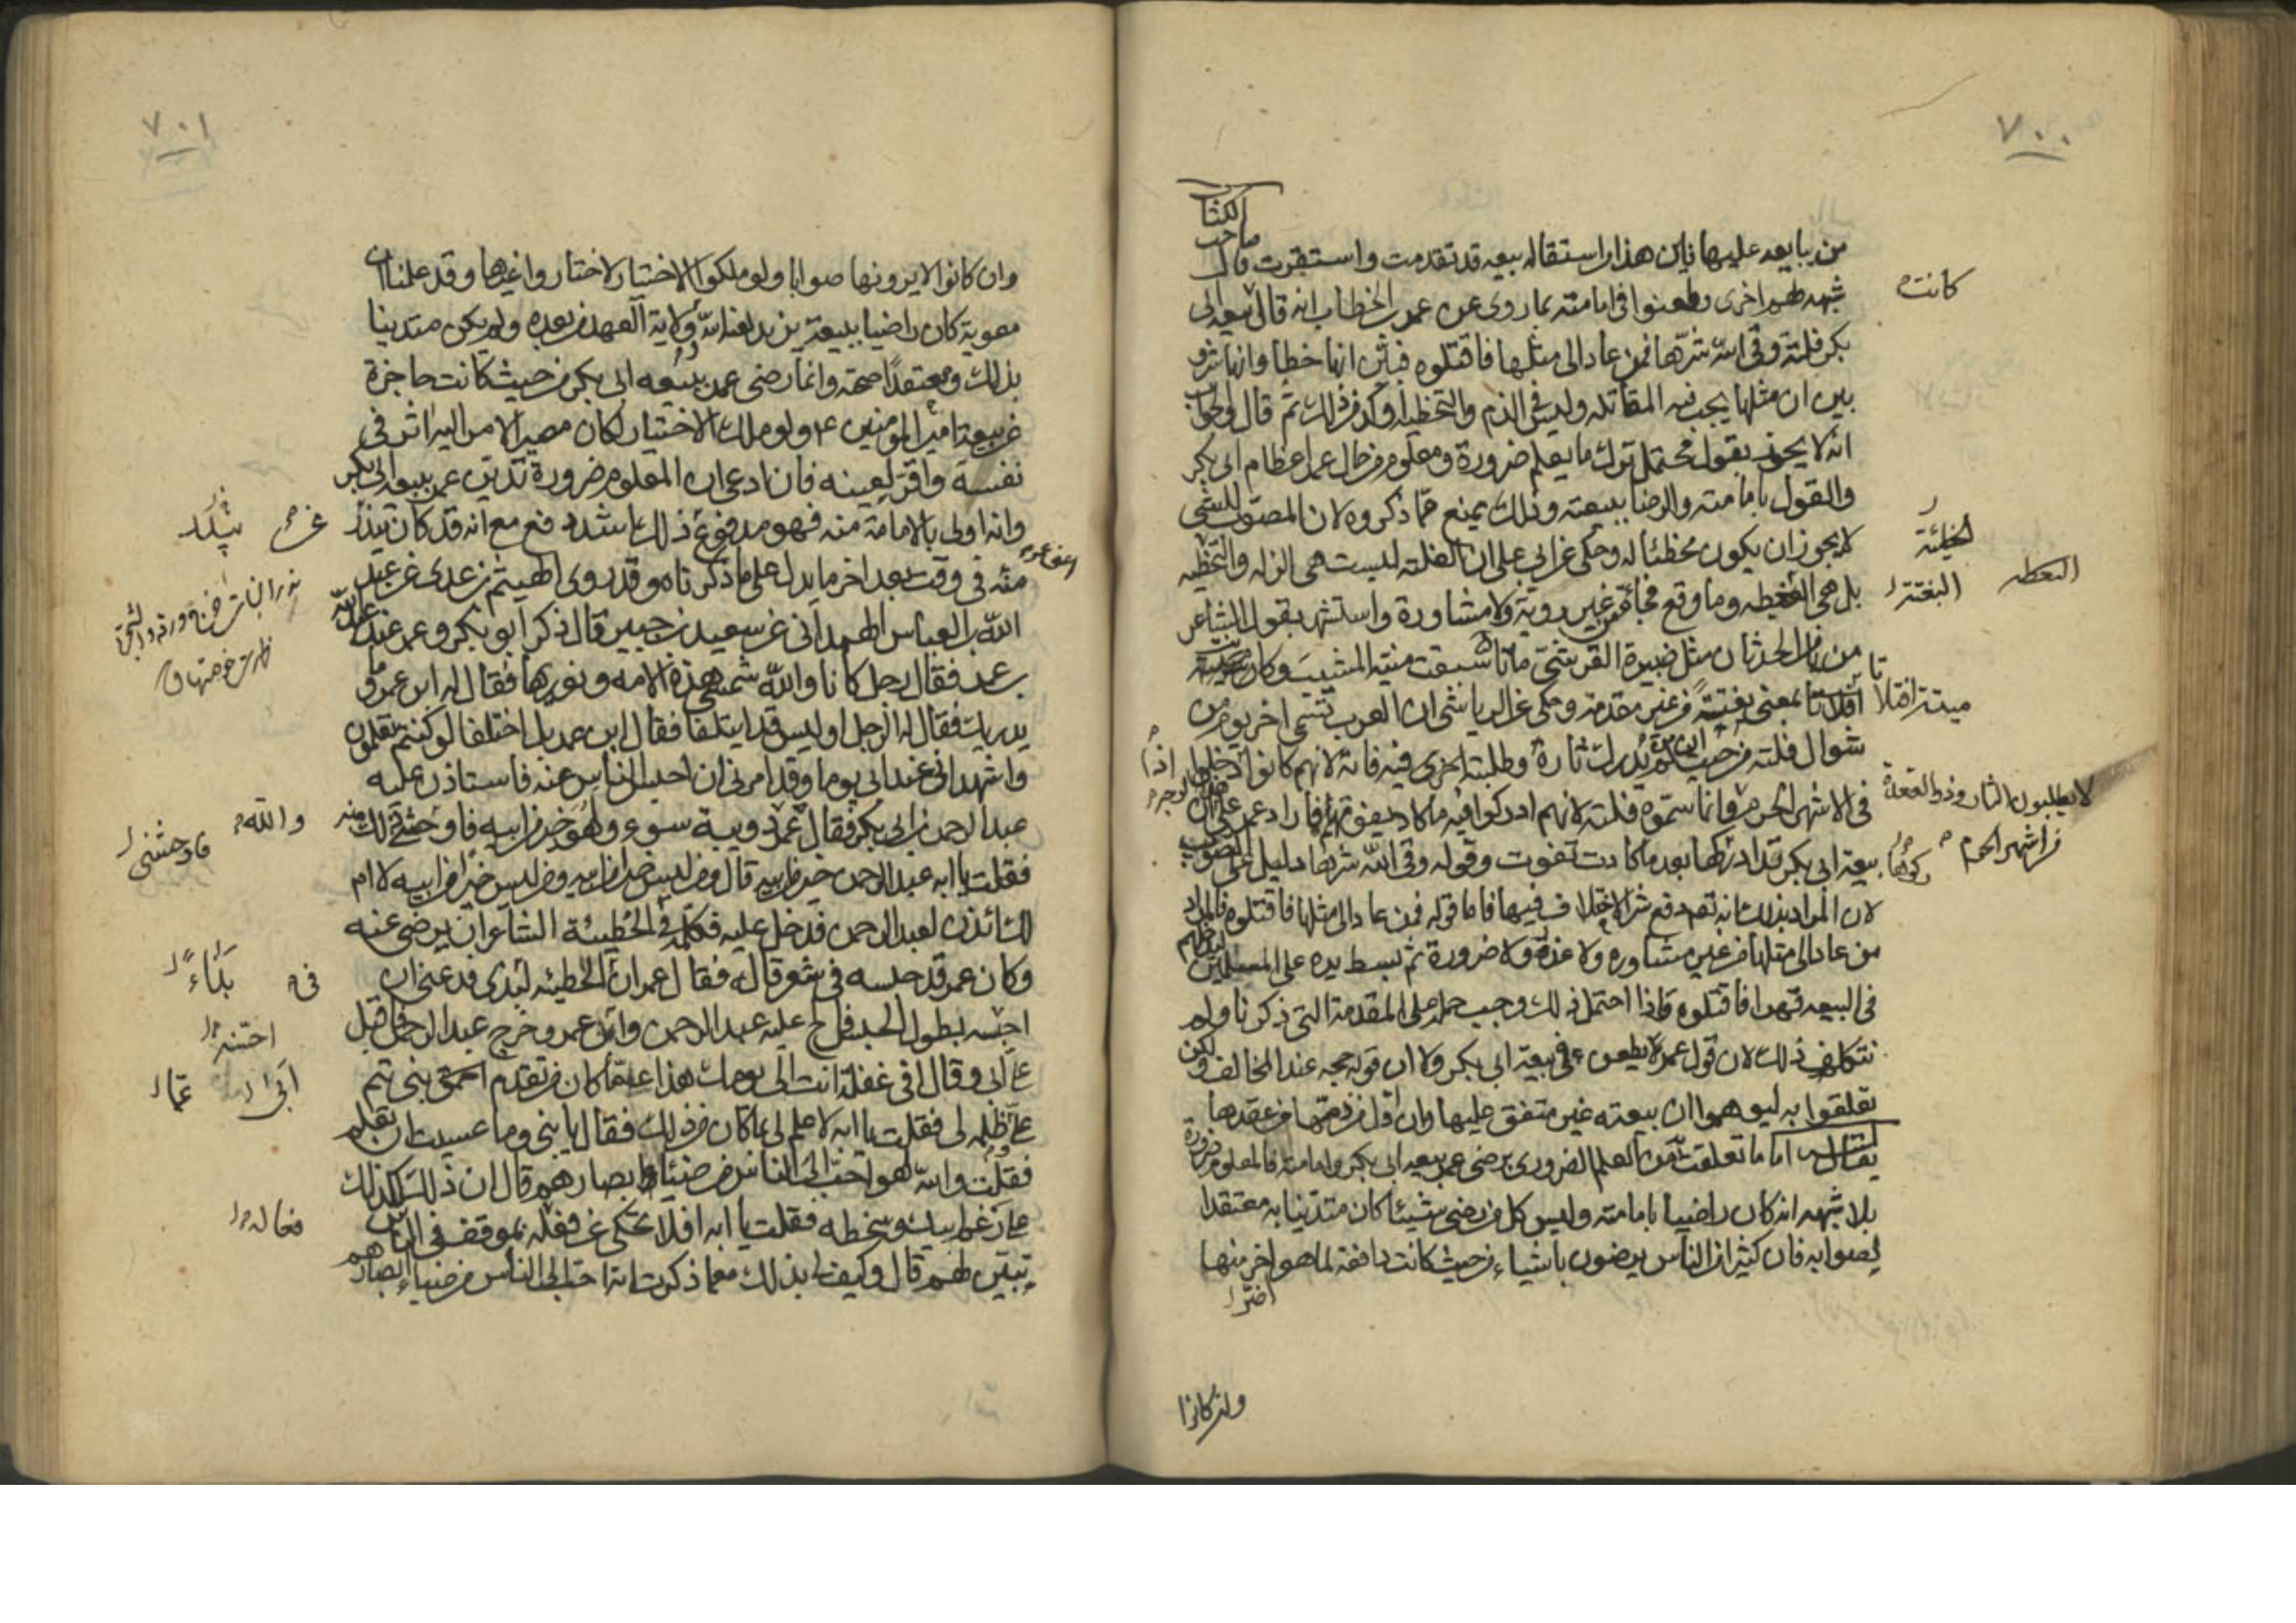 ٧٠٠
الكتاب
صاحب
من يبايعه عليها فاين هذا من استقاله بيعه قد تقدمت واستقرت قال
شبهه لهم اخرى وطعنوا في امامته بما روى عن عمر بن الخطاب انه قال بيعه ابى
بكر فلتة وقى الله شرها فمن عاد الى مثلها فاقتلوه فبين انها خطا وانها شر و
بين ان مثلها يجب فيه المقاتله وليس في الذم والتخطيه اوكد من ذلك ثم قال والجواب
انه لا يجوز بقول محتمل ترك ما يعلم ضرورة ومعلوم من حال عمر اعظام ابى بكر
والقول بامامته والرضا ببيعته وذلك يمنع مما ذكروه لان المصوب للشئ
لا يجوز ان يكون مخطئا له وحكى عن ابى على ان الفلته ليست هى الزله والخطيه
بل هى وما وقع فجاة من غير روية ولا مشاورة واستشهد بقول الشاعر
من يامن الحدثان مثل ضبيرة القرشى ماتا سبقت منيته المشيب وكان
افلاتا بمعنى بغتة من غير مقدمة وحكى عن الرياشى ان العرب تسمى اخر يوم من
شوال فلته من حيث ان من لم يدرك ثاره وطلبته اخرى فيه فاته لانهم كانوا اذا دخلوا
في الاشهر الحرم وانما سموه فلتة لانهم ادركوا فيه ما كاد يفوتهم فاراد عمر على ان
بيعة ابى بكر تداركها بعد ما كادت تفوت وقوله وقى الله شرها دليل على التصويب
لان المراد بذلك انه تعم دفع شر الاختلاف فيها فاما قوله فمن عاد الى مثلها فاقتلوه فالمراد
من عاد الى مثلها من غير مشاوره ولا عذر ولا ضرورة ثم بسط يده على المسلمين
في البيعه قهرا فاقتلوه فاذا احتمل ذلك وجب حمله على المقدمة التى ذكرنا ولم
نتكلف ذلك لان قول عمر لا يطعن في بيعة ابى بكر ولا ان قوله حجه عند المخالف ولكن
تعلقوا به ليوهموا ان بيعته غير متفق عليها وان اول من ذمها من عقدها
يقال له اما ما تعلقت به من العلم الضرورى برضى عمر ببيعه ابى بكر وامامته فالمعلوم ضرورة
بلا شبهه انه كان راضيا بامامته وليس كل من رضى شيئا كان متدينا به معتقدا
لصوابه فان كثيرا من الناس يرضون باشياء من حيث كانت دافعة لما هو اضر منها
وان كانوا
كانت
البغتة
لا يطلبون الثار وذو القعدة
من اشهر الحرم
٧٠١
وان كانوا لا يرونها صوابا ولو ملكوا الاختيار لاختاروا غيرها وقد علمنا ان
معوية كان راضيا ببيعة يزيد لعنه الله وولاية العهد من بعده ولم يكن متدينا
بذلك ومعتقدا صحته وانما رضى عمر ببيعه ابى بكر من حيث كانت حاجزة
عن بيعة امير المؤمنين ع ولو ملك الاختيار لكان مصير الامر اليه اثر في
نفسه واقر لعينه فان ادعى ان المعلوم ضرورة تدين عمر ببيعه ابى بكر
وانه اولى بالامامة منه فهو مدفوع عن ذلك باشد دفع مع انه قد كان يبدر
منه في وقت بعد اخر ما يدل على ما ذكرناه وقد روى الهيثم بن عدى عن عبد
الله بن العباس الهمدانى عن سعيد بن جبير قال ذكر ابو بكر وعمر عند عبد الله
بن عمر فقال رجل كانا والله شمسى هذه الامه ونوريها فقال له ابن عمر وما
يدريك فقال له الرجل او ليس قد ايتلفا فقال ابن عمر بل اختلفا لو كنتم تعلمون
واشهد انى عند ابى يوما وقد امرنى ان احبس الناس عنه فاستاذن عليه
عبد الرحمن بن ابى بكر فقال عمر دويبة سوء ولهو خير من ابيه فاوحشنى ذلك منه
فقلت يا ابه عبد الرحمن خير من ابيه قال ومن ليس خيرا من ابيه ومن ليس خيرا من ابيه لا ام
لك ائذن لعبد الرحمن فدخل عليه فكلمه في الحطيئة الشاعر ان يرضى عنه
وكان عمر قد حبسه في شعر قاله فقال عمر ان الحطيئه لبذى فدعنى ان
احبسه بطول الحبس فالح عليه عبد الرحمن وابى عمر وخرج عبد الرحمن فاقبل
على ابى وقال افى غفلة انت الى يومك هذا عما كان من تقدم احمق بنى تيم
على وظلمه لى فقلت يا ابه لا علم لى بما كان من ذلك فقال يا بنى وما عسيت ان تعلم
فقلت والله لهو احب الى الناس من ضياء ابصارهم قال ان ذلك لكذلك
على زغم ابيك وسخطه فقلت يا ابه افلا تحكى عن فعله بموقف في الناس
تبين لهم قال وكيف لى بذلك مع ما ذكرت انه احب الى الناس من ضياء ابصارهم
والله
فاوحشنى
في
بذاء
عما
فعاله